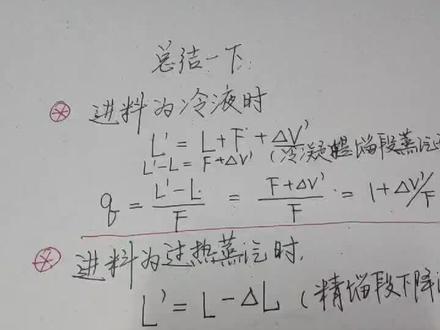 总结一下:
⊛ 进料为冷液时
L' = L + F + ΔV'
L'-L = F+ΔV' (冷凝提馏段蒸汽
q = (L'-L)/F = (F+ΔV')/F = 1+ΔV'/F
⊛ 进料为过热蒸汽时.
L' = L - ΔL (精馏段下降